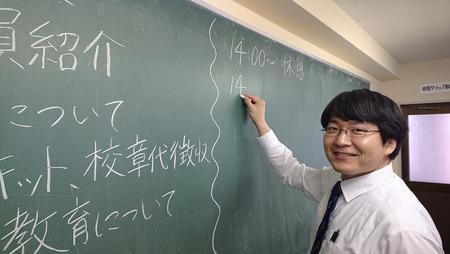 員紹介
について
ケット、校章代徴収
教育について
14:00～ 休憩
14